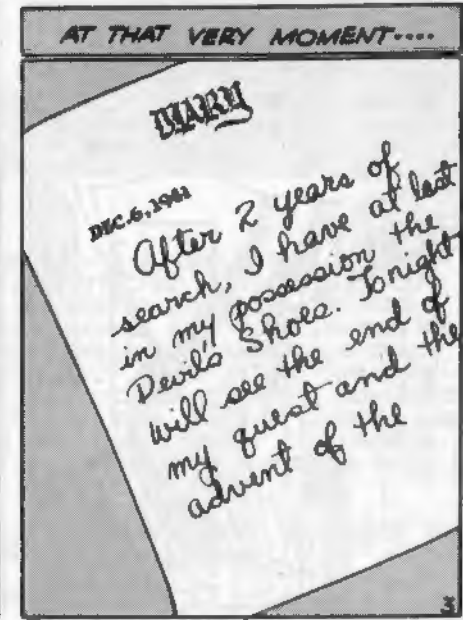 AT THAT VERY MOMENT....
DIARY
DEC. 6, 1941
After 2 years of
search, I have at last
in my possession the
Devil's Shoes. Tonight
will see the end of
my quest and the
advent of the
3